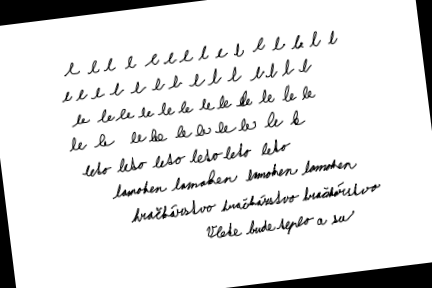 l l l l l l l l l l l l l l l l
l l l l l l l l l l l l l l l
le le le le le le le le le le le
le le le le le le le le le le
leto leto leto leto leto leto
lamohen lamohen lamohen lamohen
hračkárstvo hračkárstvo hračkárstvo
V lete bude teplo a